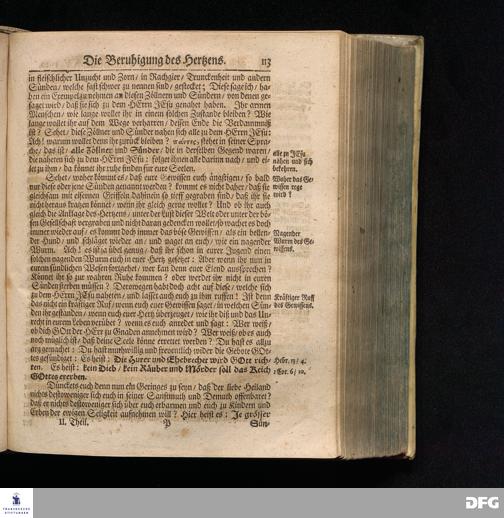 Die Beruhigung des Hertzens. 113
in fleischlicher Unzucht und Zorn / in Rachgier / Trunckenheit und andern
Sünden / welche fast schwer zu nennen sind / gestecket; Diese sage ich / ha-
ben ein Exempel zu nehmen an diesen Zöllnern und Sündern / von denen ge-
saget wird / daß sie sich zu dem HErrn JEsu genahet haben. Ihr armen
Menschen / wie lange wollet ihr in einem solchen Zustande bleiben? Wie
lange wollet ihr auf dem Wege verharren / dessen Ende die Verdammniß
ist? Sehet / diese Zöllner und Sünder nahen sich alle zu dem HErrn JEsu:
Ach! warum wollet denn ihr zurück bleiben? πάντες, stehet in seiner Spra-
che / das ist / alle Zöllner und Sünder / die in derselben Gegend waren /
die naheten sich zu dem HErrn JEsu: folget ihnen alle darinn nach / und ei-
let zu ihm / da könnet ihr ruhe finden für eure Seelen.
alle zu JEsu
nahen und sich
bekehren.
Sehet / woher kömmt es / daß eure Gewissen euch ängstigen / so bald
nur diese oder jene Sünden genannt werden? kommt es nicht daher / daß sie
gleichsam mit eisernen Griffeln dahinein so tieff gegraben sind / daß ihr sie
nicht heraus kratzen könnet / wenn ihr gleich gerne wollet? Und ob ihr auch
gleich die Anklage des Hertzens / unter der Lust dieser Welt oder unter der bö-
sen Gesellschafft vergraben und nicht daran gedencken wollet / so wachet es doch
immer wieder auf / es kommt doch immer das böse Gewissen / als ein bellen-
der Hund / und schläget wieder an / und naget an euch / wie ein nagender
Wurm. Ach! es ist ja übel genug / daß ihr schon in eurer Jugend einen
solchen nagenden Wurm euch in euer Hertz gesetzet: Aber wenn ihr nun in
euren sündlichen Wesen fortgehet / wer kan denn euer Elend aussprechen?
Könnet ihr so zur wahren Ruhe kommen? oder werdet ihr nicht in euren
Sünden sterben müssen? Derowegen habt doch acht auf diese / welche sich
zu dem HErrn JEsu naheten / und lasset auch euch zu ihm ruffen! Ist denn
das nicht ein kräftiger Ruf / wenn euch euer Gewissen saget / in welchen Sün-
den ihr gestanden / wenn euch euer Hertz überzeuget / wie ihr diß und das Un-
recht in eurem Leben verübet? wenn es euch anredet und sagt: Wer weiß /
ob dich GOtt der HErr zu Gnaden annehmen wird? Wer weiß / obes auch
noch müglich ist / daß deine Seele könne errettet werden? Du hast es allzu
arg gemachet: Du hast muthwillig und freventlich wider die Gebote GOt-
tes gesündiget: Es heist: Die Hurer und Ehebrecher wird GOtt rich-
ten. Es heist: kein Dieb / kein Räuber und Mörder soll das Reich
GOttes ererben.
Woher das Ge-
wissen rege
wird?
Nagender
Wurm des Ge-
wissens.
Kräftiger Ruff
des Gewissens.
Hebr. 13/ 4.
1 Cor. 6/ 10.
Düncket es euch denn nun ein Geringes zu seyn / daß der liebe Heiland
nichts destoweniger sich euch in seiner Sanftmuth und Demuth offenbaret?
daß er nichts destoweniger sich über euch erbarmen und euch zu Kindern und
Erben der ewigen Seligkeit aufnehmen will? Hier heist es: Je grösser
II. Theil. P Sün-
FRANCKESCHE
STIFTUNGEN
DFG